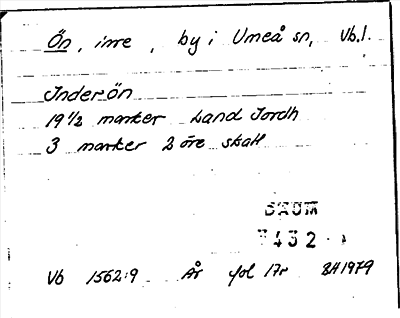 Ön, inre, by i Umeå sn, Vb.l.
Inderön
19 1/2 marker Land Jordh
3 marker 2 öre skatt
DAUM
7432
Vb 1562:9 År fol 17r BH1979